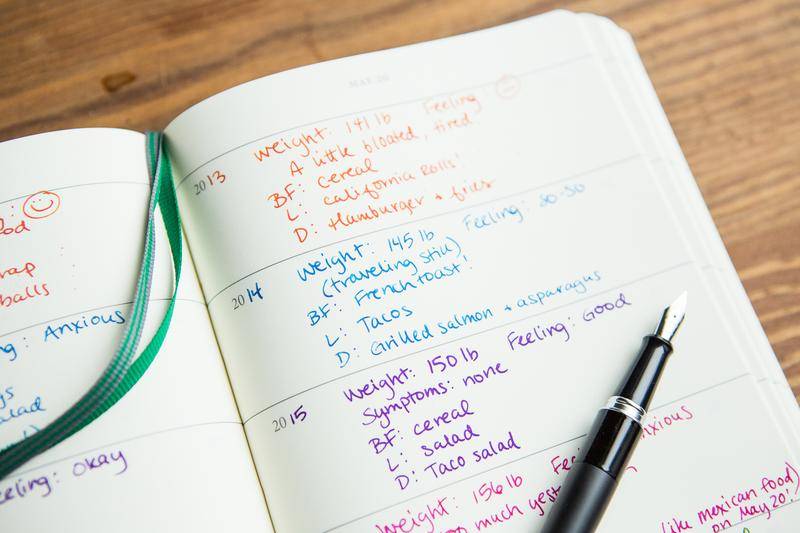 MAY 20
2013
Weight: 141 lb Feeling
A little bloated, tired
BF: cereal
L: california rolls
D: Hamburger + fries
2014
Weight: 145 lb Feeling: so-so
(traveling still)
BF: French toast
L: Tacos
D: Grilled salmon + asparagus
2015
Weight: 150 lb Feeling: Good
Symptoms: none
BF: cereal
L: salad
D: Taco salad
Weight: 156 lb
much
(like mexican food)
on May 20!
Anxious
eeling: okay